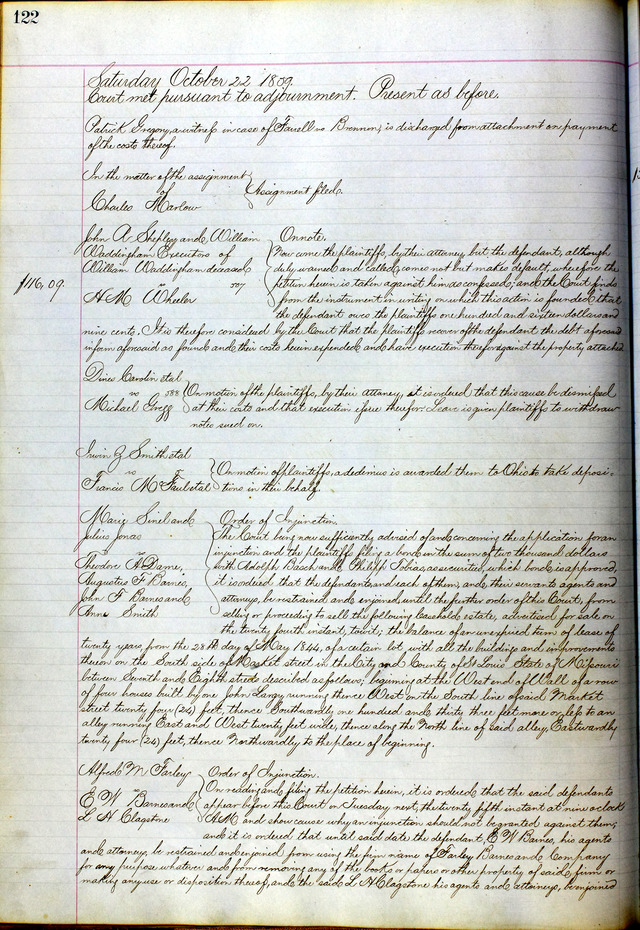 122
Saturday October 22 1859
Court met pursuant to adjournment. Present as before.
Patrick Gregory, a witness in case of Farrell vs Brennen, is discharged from attachment on payment
of the costs thereof.
In the matter of the assignment
of
Charles Marlow
Assignment filed.
John A Shepley and William
Waddingham Executors of
William Waddingham deceased
vs 507
H M Wheeler
$116,09.
On note.
Now come the plaintiffs, by their attorney but the defendant, although
duly warned and called, comes not but makes default, wherefore the
petition herein is taken against him as confessed; and the Court finds
from the instrument in writing on which this action is founded that
the defendant owes the plaintiffs one hundred and sixteen dollars and
nine cents. It is therefore considered by the Court that the plaintiffs recover of the defendant the debt aforesaid
in form aforesaid as found and their costs herein expended and have execution therefor against the property attached
Dines Carolin et al
vs 588
Michael Gregg
On motion of the plaintiffs, by their attorney, it is ordered that this cause be dismissed
at their costs and that execution issue therefor. Leave is given plaintiffs to withdraw
notes sued on.
Irwin Z Smith et al
vs
Francis M et al
On motion of plaintiffs, a dedimus is awarded them to Ohio to take deposi-
tions in their behalf.
and
Julius Jonas
vs
Theodore A Dame,
Augustus F Barnes,
John F Barnes and
Anne Smith
Order of Injunction
The Court being now sufficiently advised of and concerning the application for an
injunction and the plaintiffs filing a bond in the sum of two thousand dollars
with Adolph Basch and Philipp Tobias, as securities, which bond is approved,
it is ordered that the defendants and each of them, and their servants agents and
attorneys, be restrained and enjoined, until the further order of this Court, from
selling or proceeding to sell the following leasehold estate, advertised for sale on
the twenty fourth instant, to wit; the balance of an unexpired term of lease of
twenty years, from the 28th day of May 1844, of a certain lot with all the buildings and improvements
thereon on the South side of Market street in the City and County of St Louis State of Missouri
between Seventh and Eighth streets described as follows; beginning at the West end of Wall of a row
of four houses built by one John Sargy, running thence West on the South line of said Market
street twenty four (24) feet, thence Southwardly one hundred and thirty three feet more or less to an
alley running East and West twenty feet wide, thence along the North line of said alley, Eastwardly
twenty four (24) feet, thence Northwardly to the place of beginning.
Alfred M Farley
vs
E W Barnes and
L H Clagstone
Order of Injunction.
On reading and filing the petition herein, it is ordered that the said defendants
appear before this Court on Tuesday next, the twenty fifth instant at nine oclock
A M and show cause why an injunction should not be granted against them,
and it is ordered that until said date the defendant, E W Barnes, his agents
and attorneys, be restrained and enjoined from using the firm name of Farley Barnes and Company
for any purpose whatever and from removing any of the books or papers or other property of said firm or
making any use or disposition thereof, and the said L H Clagstone his agents and attorneys, be enjoined